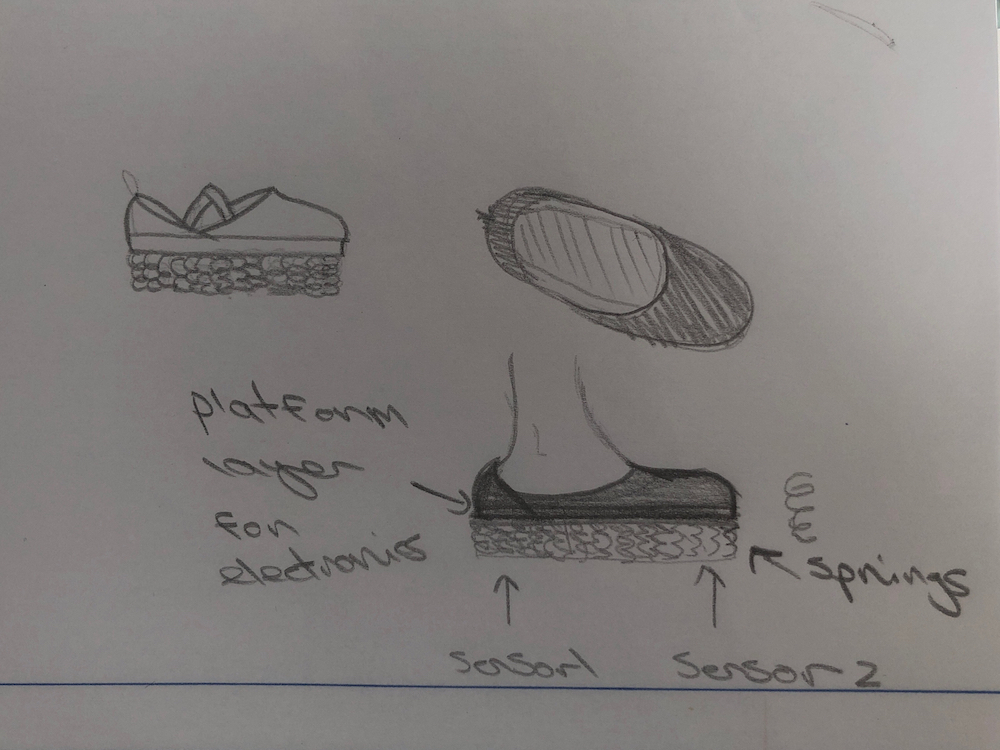 platform
layer
for
electronics
springs
sensor1
sensor 2